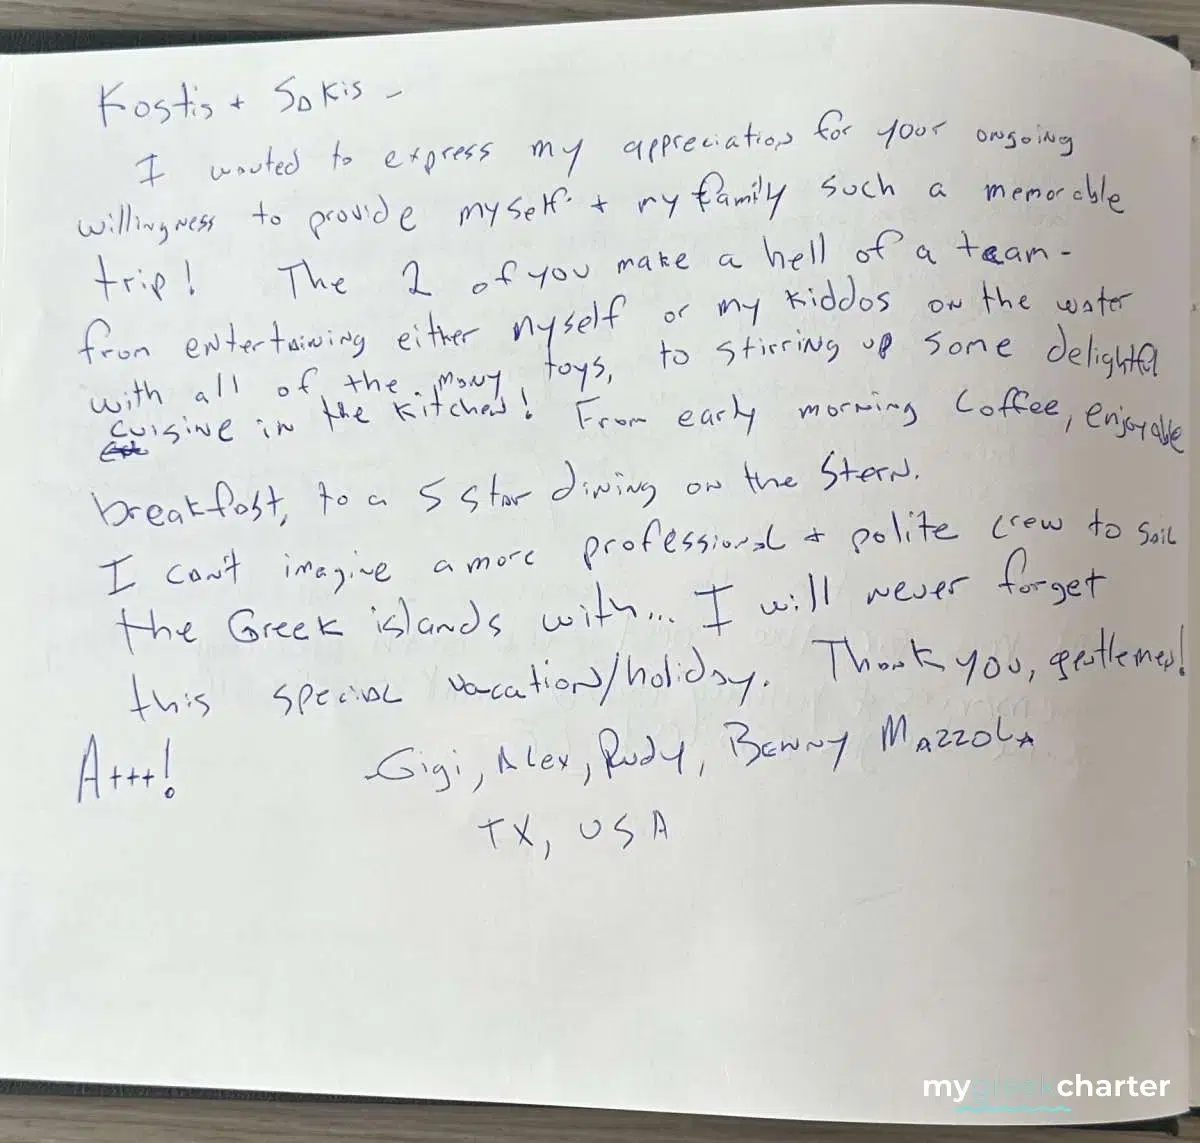 Kostis + Sakis –
I wanted to express my appreciation for your ongoing
willingness to provide myself + my family such a memorable
trip! The 2 of you make a hell of a team -
from entertaining either myself or my kiddos on the water
with all of the many toys, to stirring up some delightful
cuisine in the kitchen! From early morning coffee, enjoyable
breakfast, to a 5 star dining on the stern.
I can't imagine a more professional + polite crew to sail
the Greek islands with... I will never forget
this special vacation/holiday. Thank you, gentlemen!
A+++! -Gigi, Alex, Rudy, Benny Mazzola
TX, USA
mygreekcharter